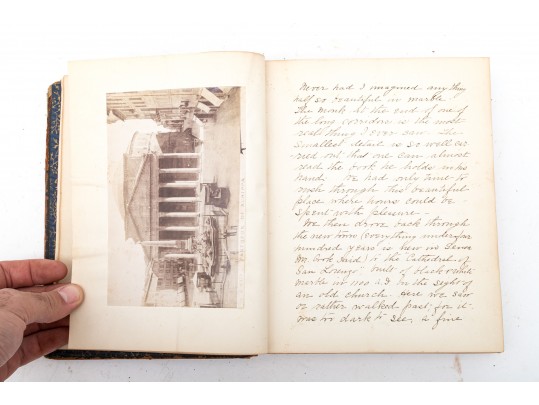 Never had I imagined any thing
half so beautiful in marble
The monk at the end of one of
the long corridors is the most
real thing I ever saw. The
smallest detail is so well car
ried out that one can almost
read the book he holds in his
hand. We had only time to
rush through this beautiful
place where hours could be
spent with pleasure.
We then drove back through
the new town (everything under four
hundred years is new in Genoa
Mr. Cook said) to the "Cathedral of
San Lorenzo" built of black & white
marble in 1100 A.D. on the sight of
an old church. Here we saw
or rather walked past, for it
was too dark to see, a fine